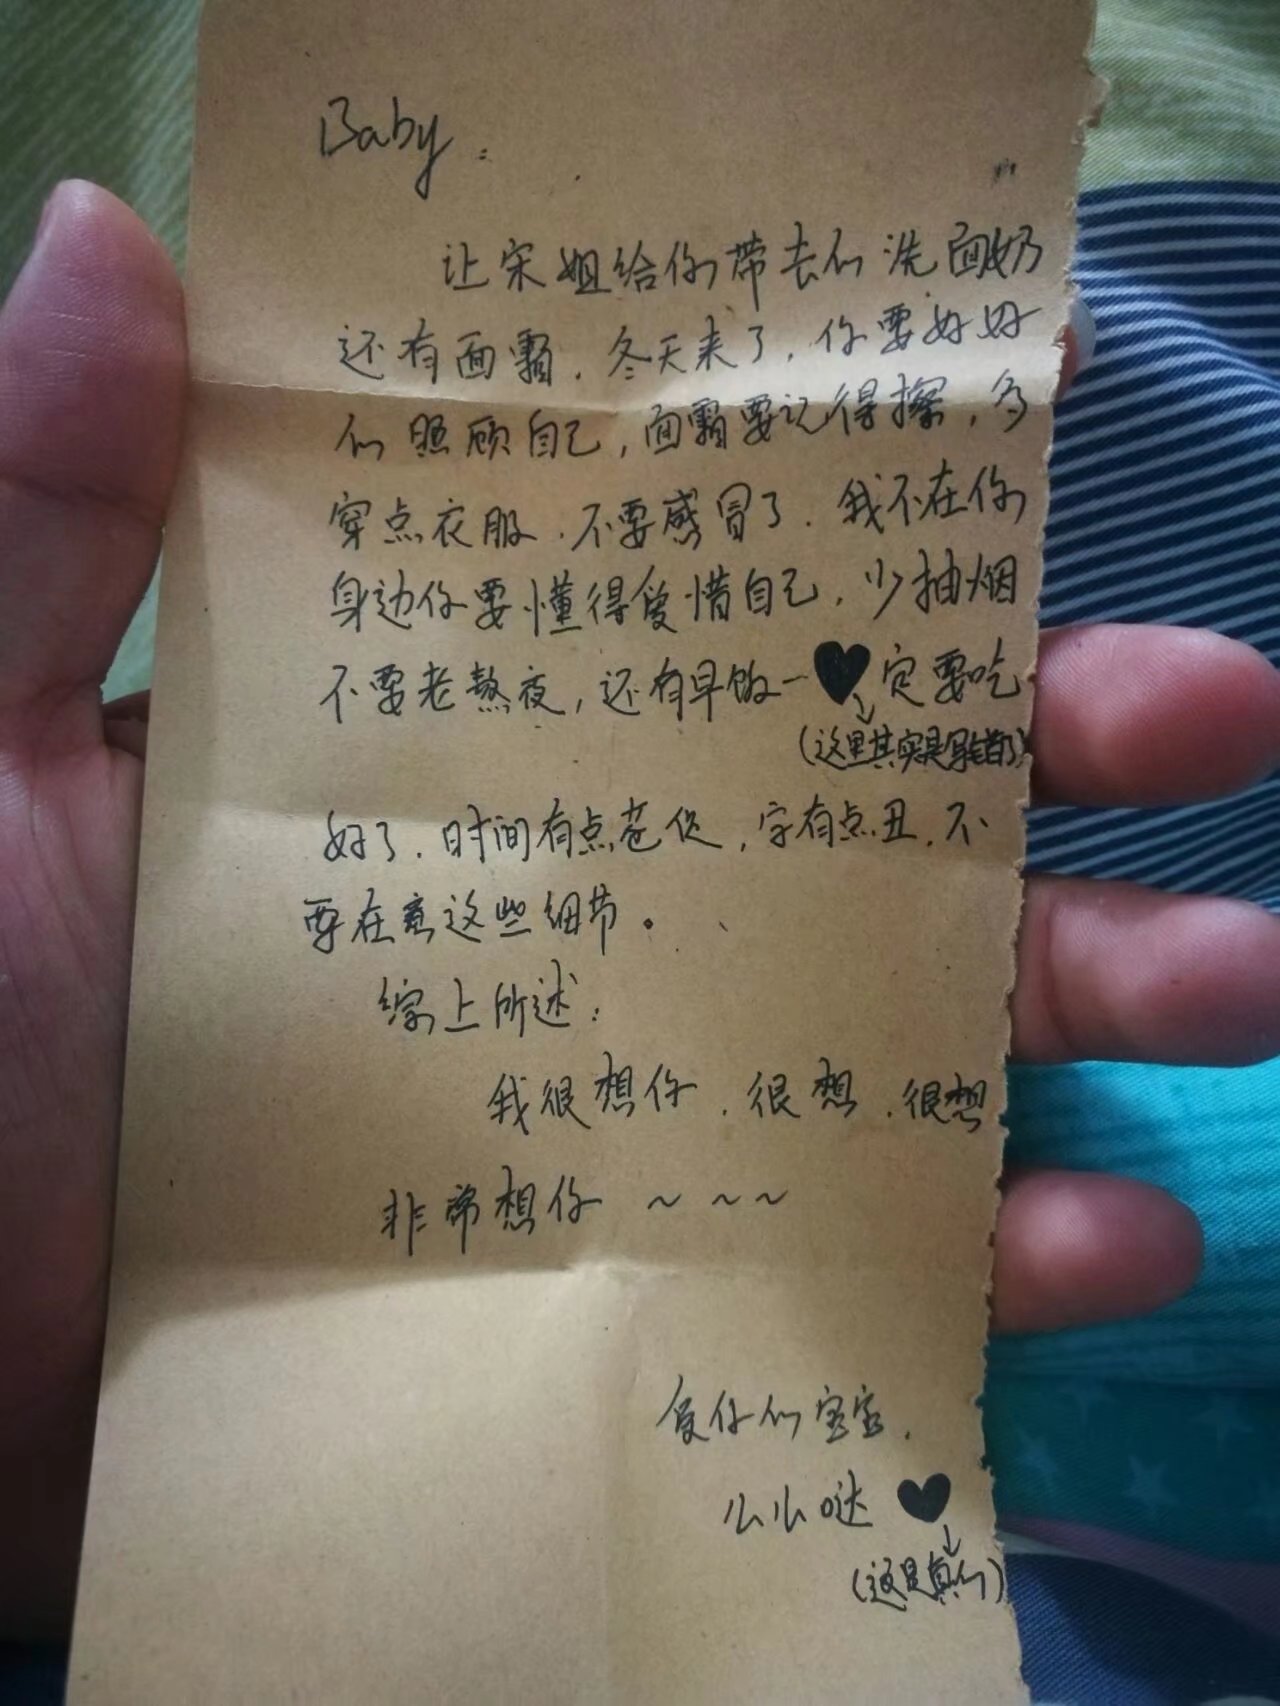 Baby:
让宋姐给你带去的洗面奶
还有面霜.冬天来了,你要好好
的照顾自己,面霜要记得擦,多
穿点衣服.不要感冒了.我不在你
身边你要懂得爱惜自己,少抽烟
不要老熬夜,还有早饭一♥定要吃
(这里其实是写错了)
好了.时间有点苍促,字有点丑.不
要在意这些细节。
综上所述:
我很想你.很想.很想
非常想你~~~
爱你的宝宝.
么么哒♥
(这是真的)